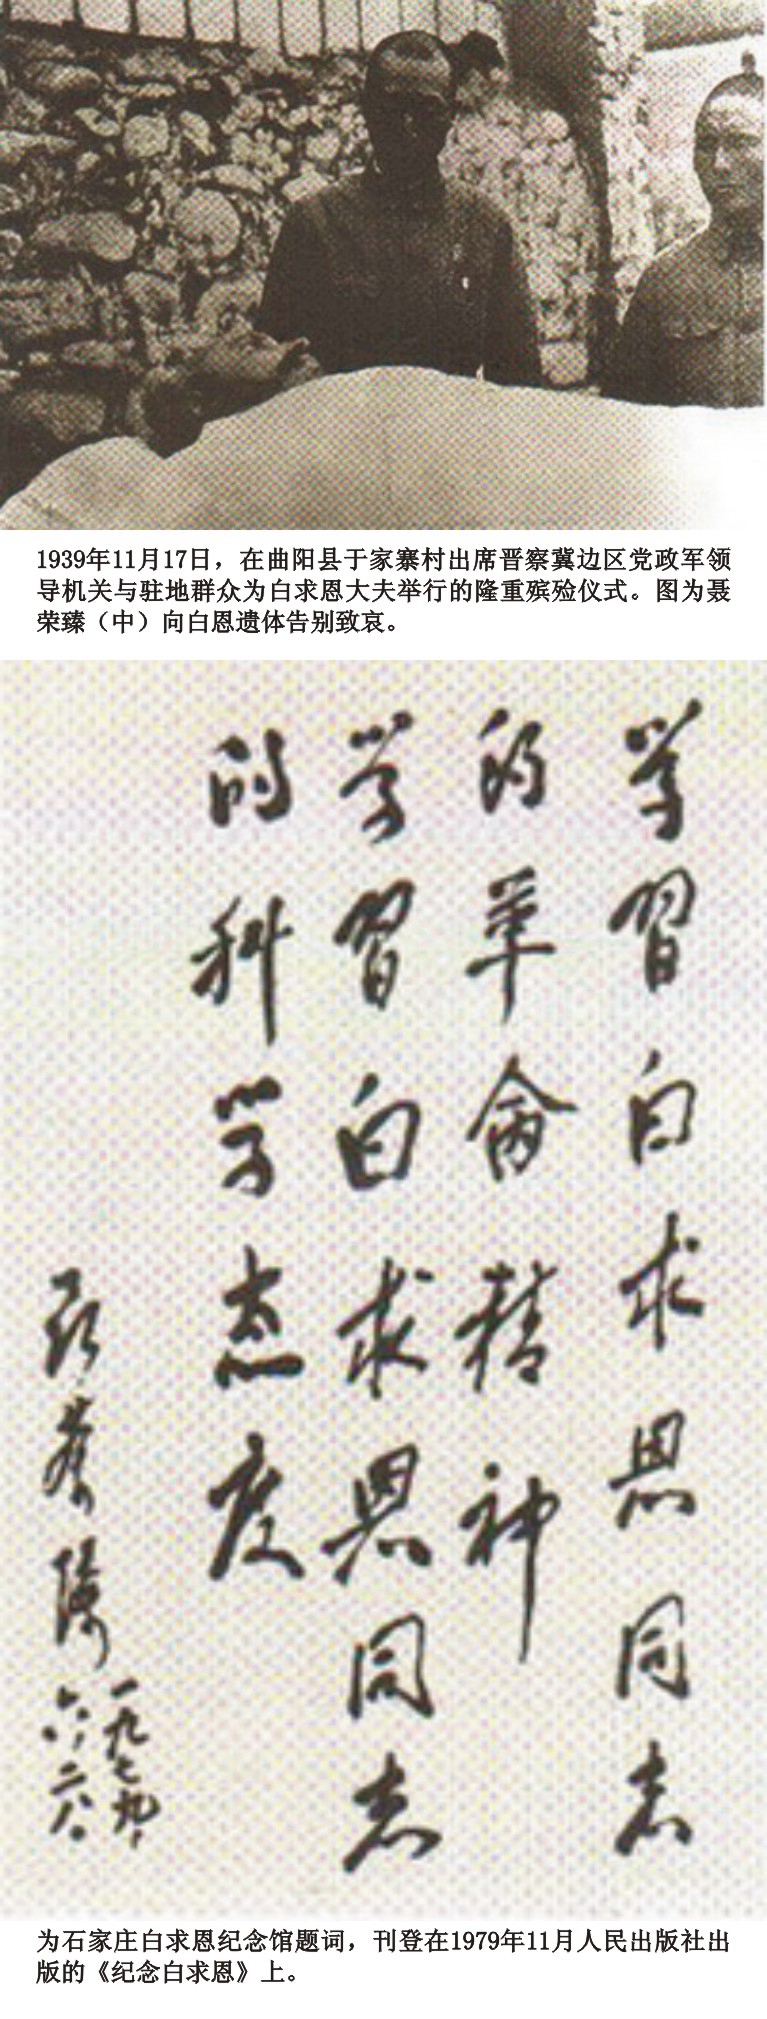 1939年11月17日，在曲阳县于家寨村出席晋察冀边区党政军领
导机关与驻地群众为白求恩大夫举行的隆重殡殓仪式。图为聂
荣臻（中）向白恩遗体告别致哀。
学習白求恩同志
的革命精神
学習白求恩同志
的科学态度
聂荣臻
一九七九、
六、二八。
为石家庄白求恩纪念馆题词，刊登在1979年11月人民出版社出
版的《纪念白求恩》上。